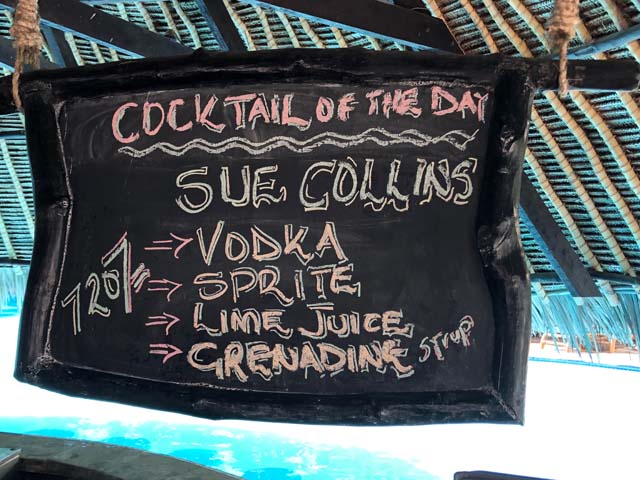 COCKTAIL OF THE DAY
SUE COLLINS
720/=
⇒ VODKA
⇒ SPRITE
⇒ LIME JUICE
⇒ GRENADINE Syrup